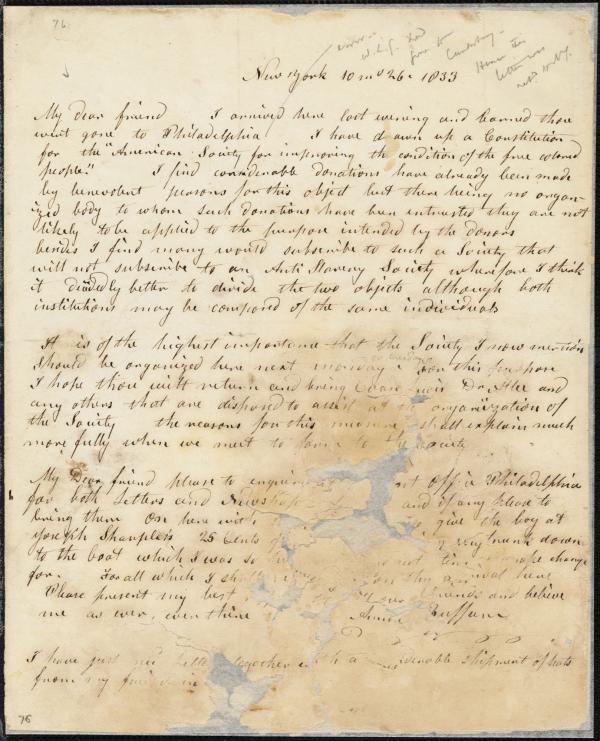 76
New York 10 mo 26. 1833
My dear friend I arrived here last evening and learned thou
went gone to Philadelphia I have drawn up a Constitution
for the "American Society for improving the condition of the free colored
people." I find considerable donations have already been made
by benevolent persons for this object but there being no organ-
ized body to whom such donations have been intrusted they are not
likely to be applied to the purpose intended by the donors
besides I find many would subscribe to such a Society that
will not subscribe to an Anti Slavery Society wherefore I think
it decidedly better to divide the two objects although both
institutions may be composed of the same individuals
It is of the highest importance that the Society I now mention
should be organized here next monday for this purpose
I hope thou wilt return and bring Dr. Atlee and
any others that are disposed to assist at the organization of
the Society the reasons for this measure shall explain much
more fully when we meet to form the Society
My Dear friend please to enquire at Office Philadelphia
for both Letters and Newspapers and if any please to
bring them on here with give the boy at
Joseph Sharpless 25 Cents my trunk down
to the boat which I was so not time to make change
for. For all which I thy arrival here
Please present my best friends and believe
me as ever, ever thine
Arnold Buffum
I have just Letter together with a shipment of hats
from my
76